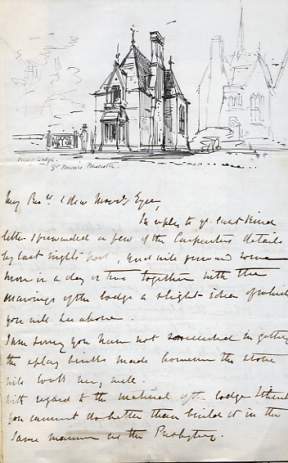 My Rev.d & dear
In reply to yr. last kind
letter I forwarded a few of the Carpenters details
by last night's post, and will forward some
more in a day or two together with the
drawings of the lodge a slight idea of which
you will see above.
I am sorry you have not succeeded in getting
the splay bricks made however the stone
will look very well.
With regard to the material of the lodge I think
you cannot do better than build it in the
same manner as the Presbytery.